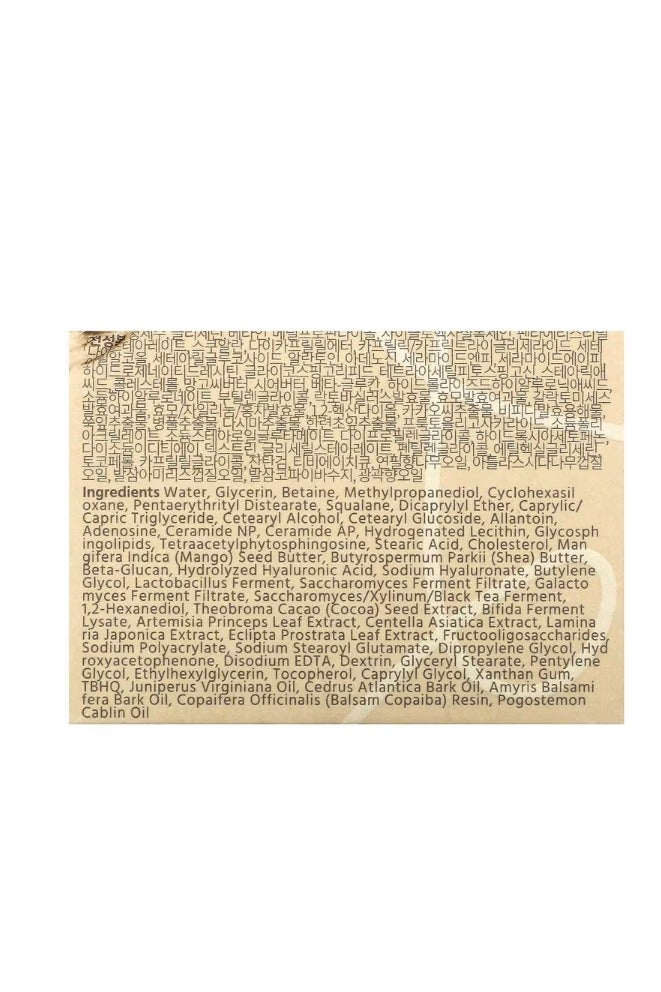 전성분 정제수, 글리세린, 베타인, 메틸프로판다이올, 사이클로헥사실록세인, 펜타에리스리틸
다이스테아레이트, 스쿠알란, 다이카프릴릴에터, 카프릴릭/카프릭트라이글리세라이드, 세테
아릴알코올, 세테아릴글루코사이드, 알란토인, 아데노신, 세라마이드엔피, 세라마이드에이피,
하이드로제네이티드레시틴, 글라이코스핑고리피드, 테트라아세틸피토스핑고신, 스테아릭애
씨드, 콜레스테롤, 망고씨버터, 시어버터, 베타-글루칸, 하이드롤라이즈드하이알루로닉애씨드,
소듐하이알루로네이트, 부틸렌글라이콜, 락토바실러스발효물, 효모발효여과물, 갈락토미세스
발효여과물, 효모/자일리눔/홍차발효물, 1,2-헥산다이올, 카카오씨추출물, 비피다발효용해물,
쑥잎추출물, 병풀추출물, 다시마추출물, 한련초잎추출물, 프룩토올리고사카라이드, 소듐폴리
아크릴레이트, 소듐스테아로일글루타메이트, 다이프로필렌글라이콜, 하이드록시아세토페논,
다이소듐이디티에이, 덱스트린, 글리세릴스테아레이트, 펜틸렌글라이콜, 에틸헥실글리세린,
토코페롤, 카프릴릴글라이콜, 잔탄검, 티비에이치큐, 연필향나무오일, 아틀라스시다나무껍질
오일, 발삼아미리스껍질오일, 발삼코파이바수지, 광곽향오일
Ingredients Water, Glycerin, Betaine, Methylpropanediol, Cyclohexasil
oxane, Pentaerythrityl Distearate, Squalane, Dicaprylyl Ether, Caprylic/
Capric Triglyceride, Cetearyl Alcohol, Cetearyl Glucoside, Allantoin,
Adenosine, Ceramide NP, Ceramide AP, Hydrogenated Lecithin, Glycosph
ingolipids, Tetraacetylphytosphingosine, Stearic Acid, Cholesterol, Man
gifera Indica (Mango) Seed Butter, Butyrospermum Parkii (Shea) Butter,
Beta-Glucan, Hydrolyzed Hyaluronic Acid, Sodium Hyaluronate, Butylene
Glycol, Lactobacillus Ferment, Saccharomyces Ferment Filtrate, Galacto
myces Ferment Filtrate, Saccharomyces/Xylinum/Black Tea Ferment,
1,2-Hexanediol, Theobroma Cacao (Cocoa) Seed Extract, Bifida Ferment
Lysate, Artemisia Princeps Leaf Extract, Centella Asiatica Extract, Lamina
ria Japonica Extract, Eclipta Prostrata Leaf Extract, Fructooligosaccharides,
Sodium Polyacrylate, Sodium Stearoyl Glutamate, Dipropylene Glycol, Hyd
roxyacetophenone, Disodium EDTA, Dextrin, Glyceryl Stearate, Pentylene
Glycol, Ethylhexylglycerin, Tocopherol, Caprylyl Glycol, Xanthan Gum,
TBHQ, Juniperus Virginiana Oil, Cedrus Atlantica Bark Oil, Amyris Balsami
fera Bark Oil, Copaifera Officinalis (Balsam Copaiba) Resin, Pogostemon
Cablin Oil